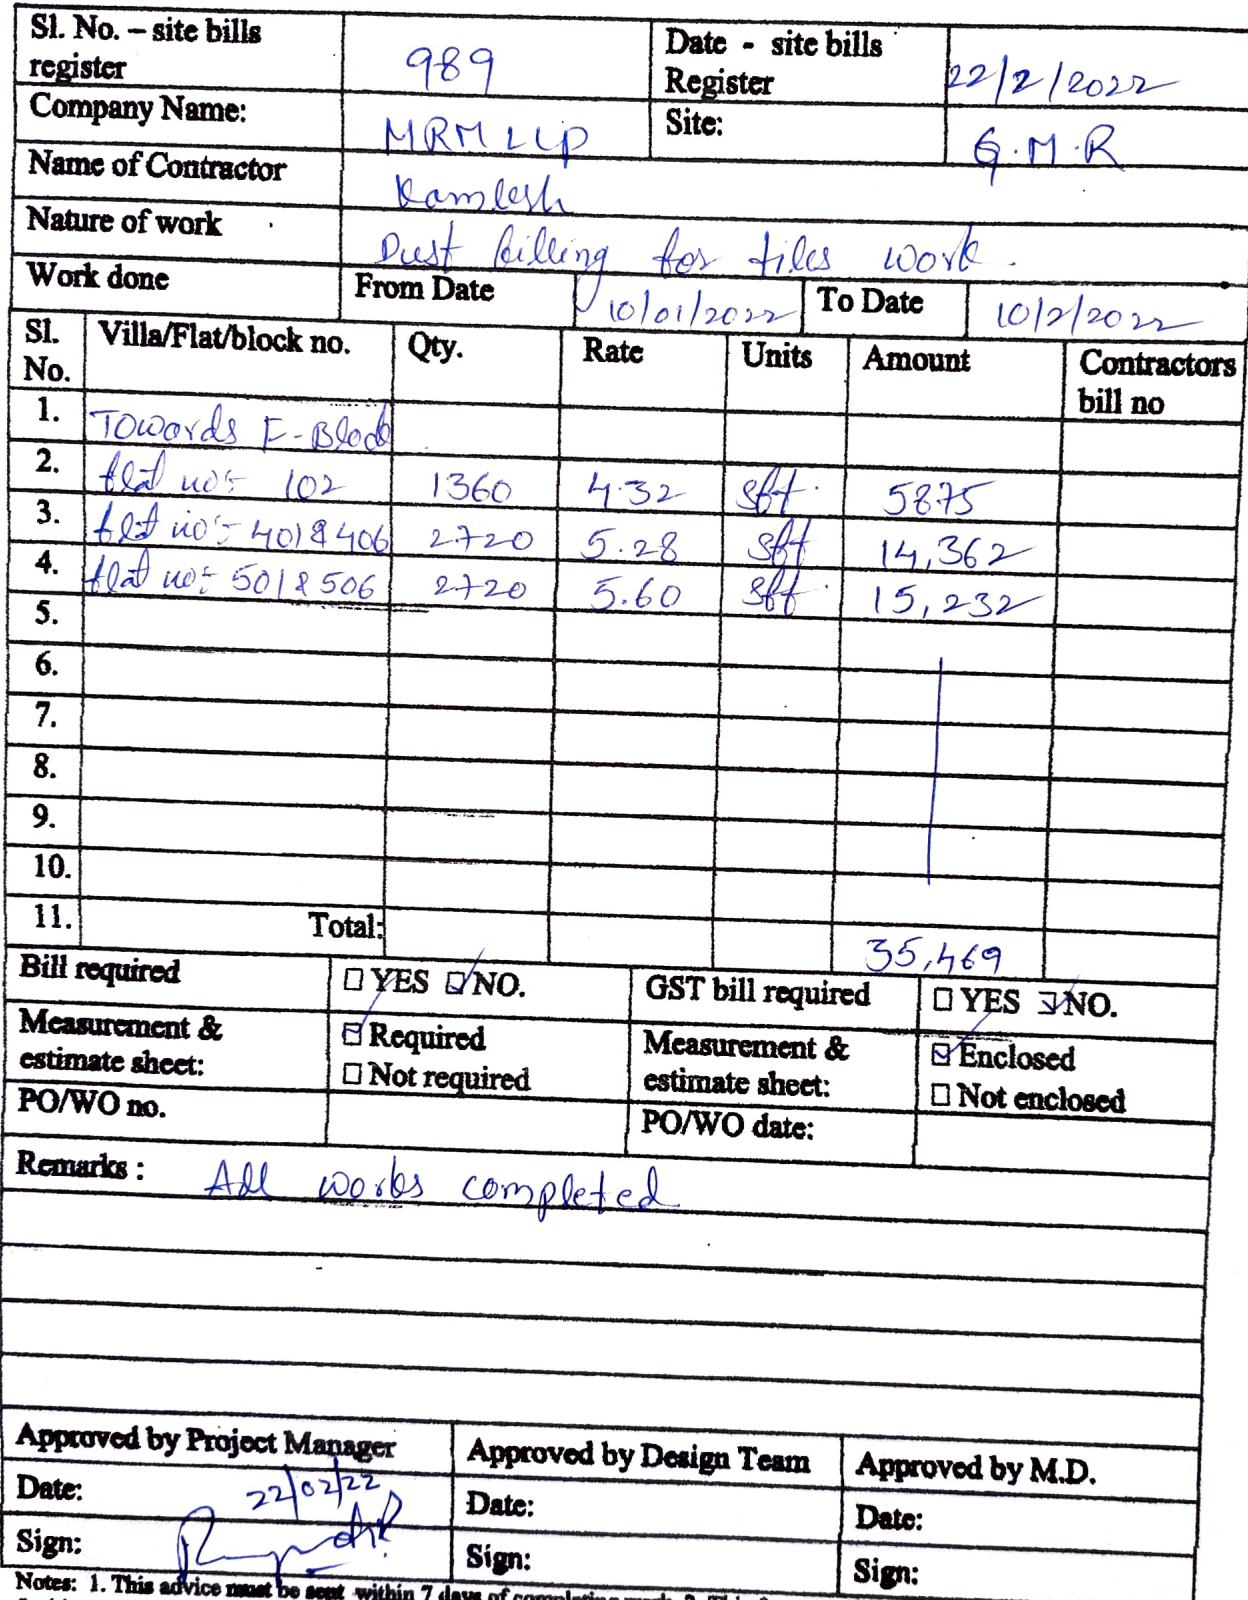 Sl. No. – site bills register 989 Date - site bills Register 22/2/2022
Company Name: MRM LLP Site: G.M.R
Name of Contractor Kamlesh
Nature of work Dust filling for tiles work.
Work done From Date 10/01/2022 To Date 10/2/2022
Sl. No. Villa/Flat/block no. Qty. Rate Units Amount Contractors bill no
1. Towards E-Block
2. flat no:- 102 1360 4.32 sft. 5875
3. flat no:- 401 & 406 2720 5.28 sft 14,362
4. flat no:- 501 & 506 2720 5.60 sft. 15,232
5.
6.
7.
8.
9.
10.
11. Total: 35,469
Bill required □ YES ☑ NO. GST bill required □ YES ☑ NO.
Measurement & estimate sheet: ☑ Required □ Not required Measurement & estimate sheet: ☑ Enclosed □ Not enclosed
PO/WO no. PO/WO date:
Remarks : All works completed
Approved by Project Manager Approved by Design Team Approved by M.D.
Date: 22/02/22 Date: Date:
Sign: Sign: Sign:
Notes: 1. This advice must be sent within 7 days of completing work. 2. This